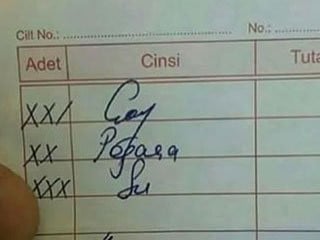 Cilt No.: No.:
Adet Cinsi Tuta
XX/ Çay
XX Poğaça
XXX Su